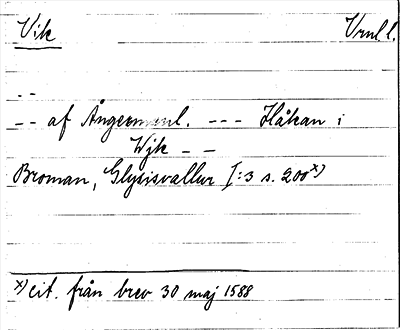 Vik Vrml l.
- -
-- af Ångermanl. --- Håkan i
Wjk - -
Broman, Glysisvallur I:3 s. 200 x)
x) cit. från brev 30 maj 1588